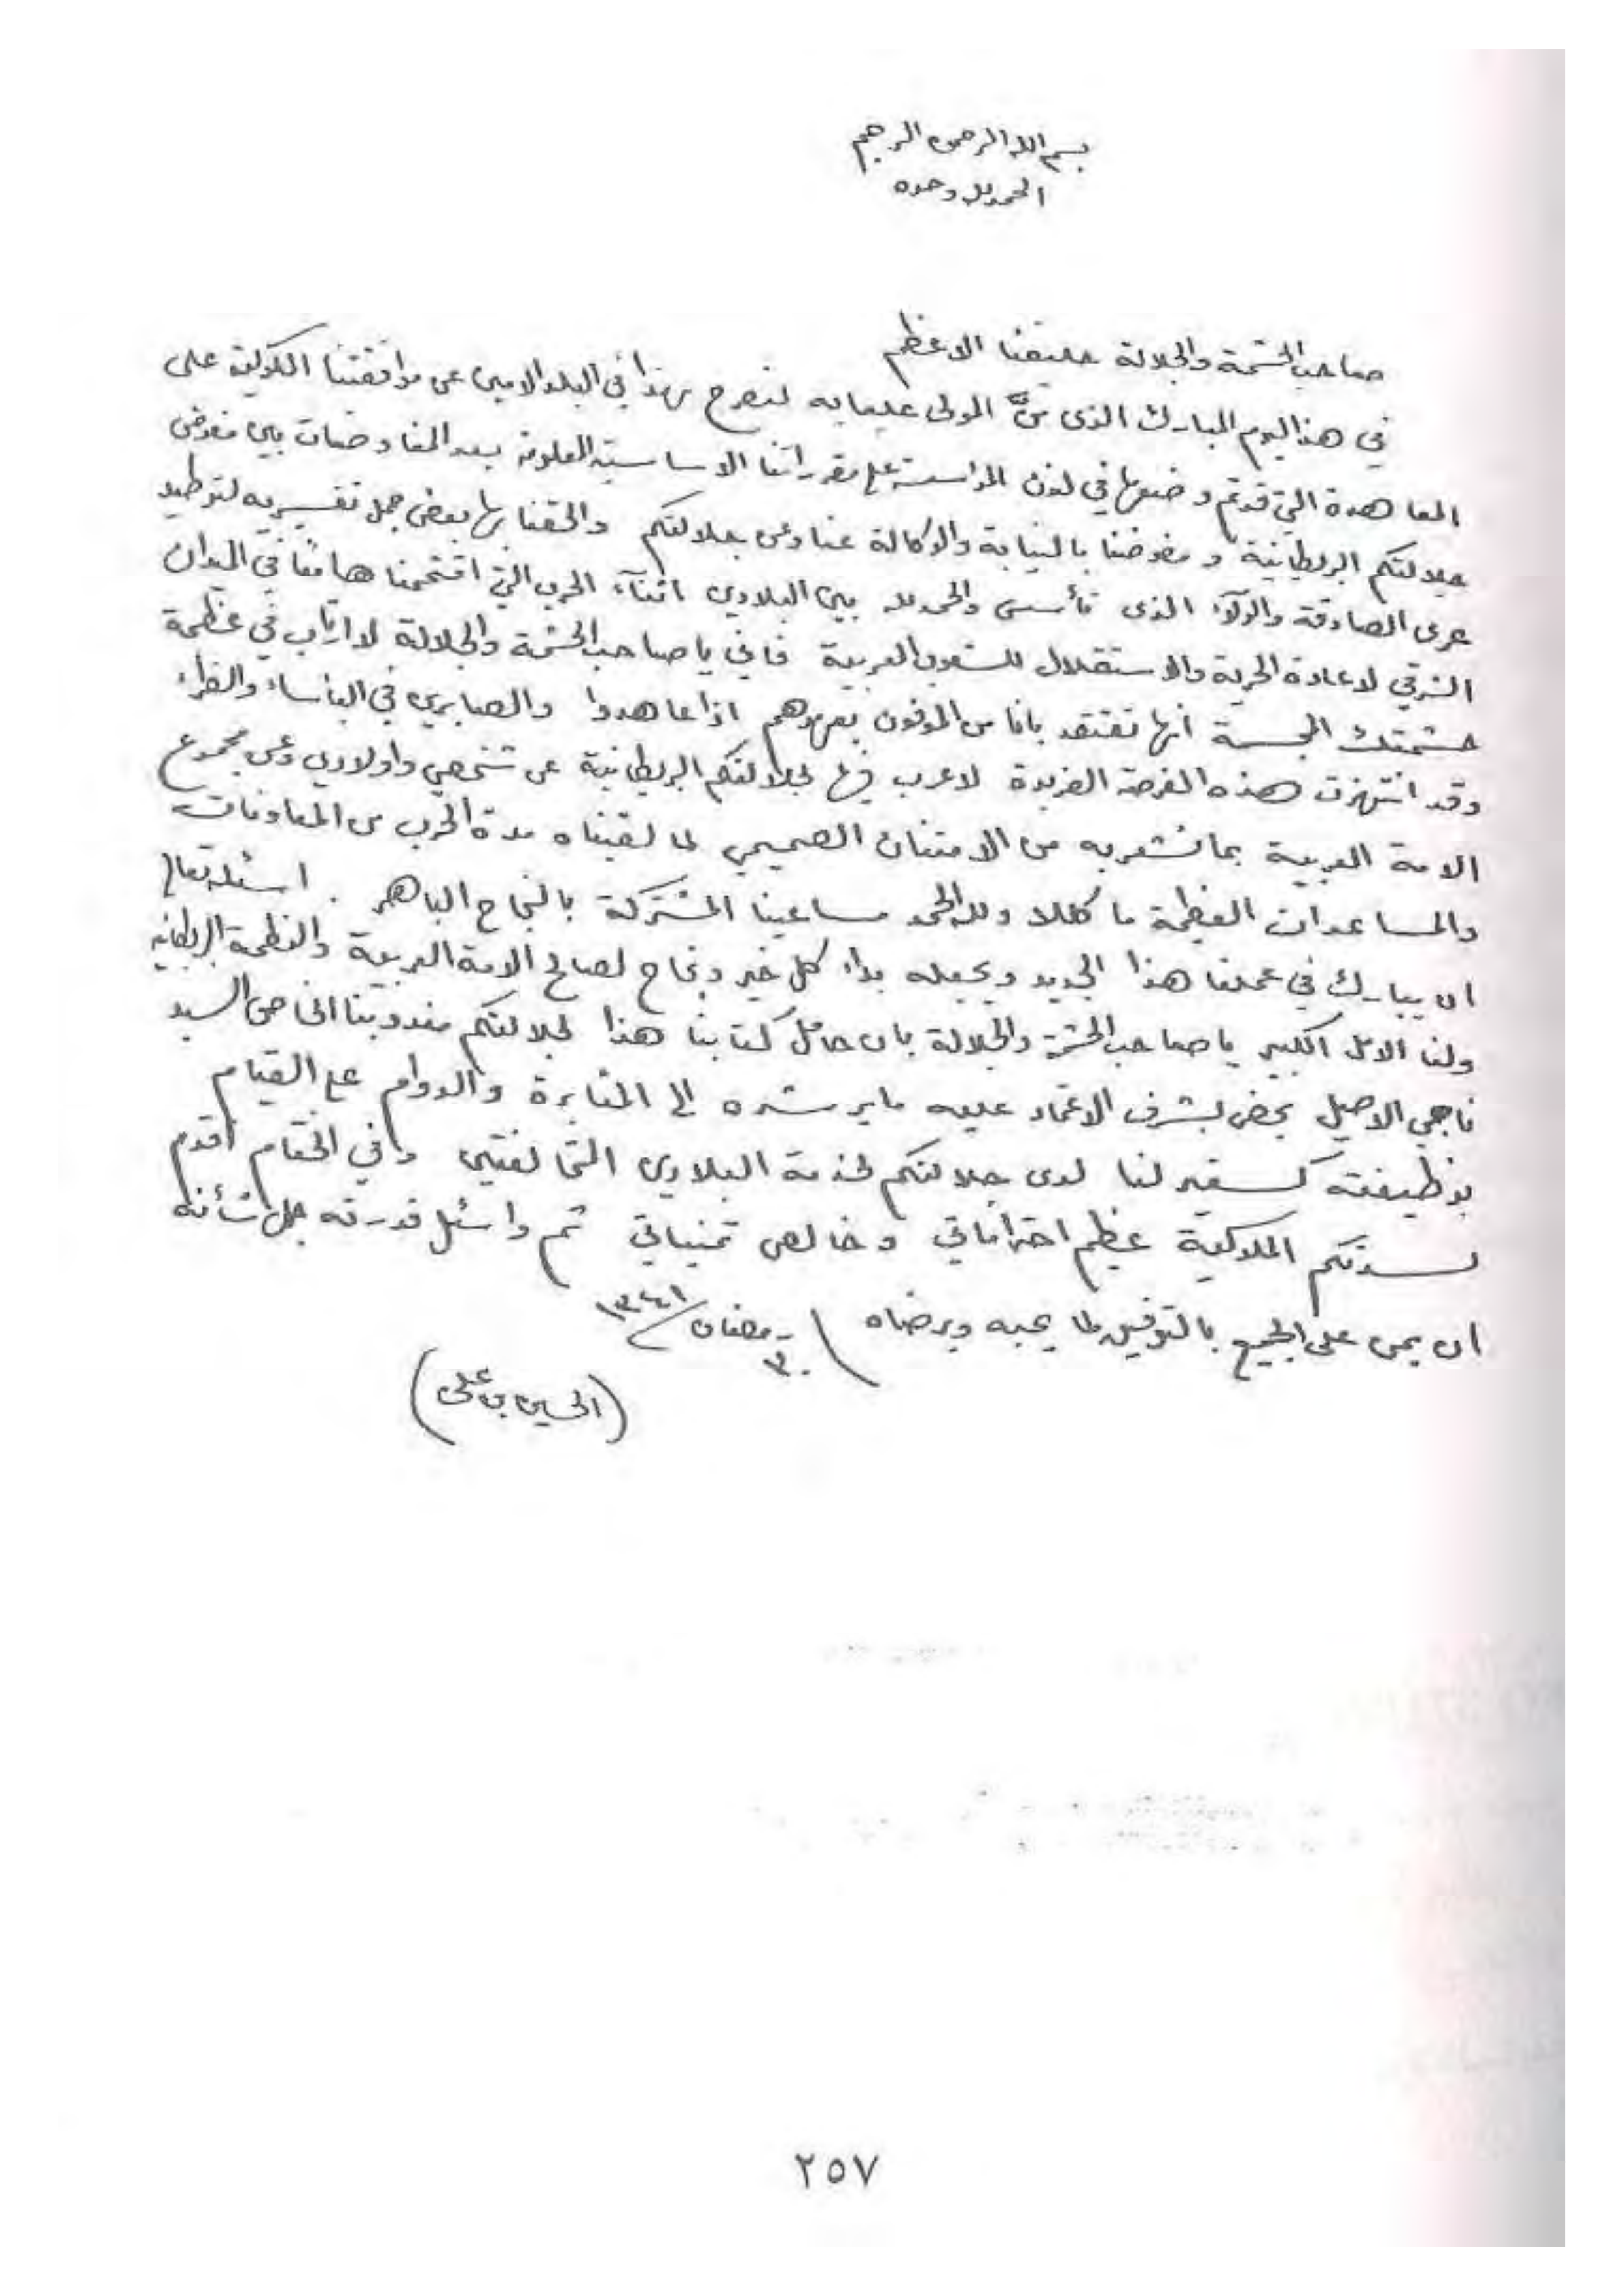 بسم الله الرحمن الرحيم
الحمد لله وحده
صاحب الحشمة والجلالة حليفنا الاعظم
في هذا اليوم المبارك الذى منّ المولى علينا به لنصرح بهذا في البلد الامين عن موافقتنا الملوكية على
المعاهدة التي قد تم وضعها في لندن المؤسسة على مقرراتنا الاساسية المعلومة بعد المفاوضات بين مفوض
جلالتكم البريطانية ومفوضنا بالنيابة والوكالة عنا وعن جلالتكم والحقنا بها بعض جمل تفسيريه لتوطيد
عرى الصداقة والولآء الذى تأسس والحمد لله بين البلادين اثنآء الحرب التي اقتحمنا هامعًا في الميدان
الشرقي لاعادة الحرية والاستقلال للشعوب العربية فاني يا صاحب الحشمة والجلالة لا ارتاب في عظمة
حشمتك انها تعتقد بانا من الموفون بعهدهم اذا عاهدوا والصابرين في البأساء والضراء
وقد انتهزت هذه الفرصة الفريدة لاعرب فيها لجلالتكم البريطانية عن شخصي واولادي وعن مجموع
الامة العربية بما نشعر به من الامتنان الصميمي لما لقيناه مدة الحرب من المعاونات
والمساعدات العظيمة ما كلل ولله الحمد مساعينا المشتركة بالنجاح الباهر . اسئله تعالى
ان يبارك في عملنا هذا الجديد ويجعله بداء كل خير ونجاح لصالح الامة العربية والعظمة البريطانيه
ولنا الامل الكبير يا صاحب الحشمة والجلالة بان حامل كتابنا هذا لجلالتكم مندوبنا الخاص السيد
ناجي الاصيل يحض بشرف الاعتماد عليه ما يرشده الى المثابرة والدوام على القيام
بوظيفته كسفير لنا لدى جلالتكم لخدمة البلادين المتحالفتين وفي الختام اقدم
لسدتكم الملوكية عظيم احتراماتي وخالص تمنياتي ثم واسئل قدرته جل شأنه
ان يمن على الجميع بالتوفيق لما يحبه ويرضاه ٣٠ رمضان ١٣٤١
(الحسين بن على)
٢٥٧